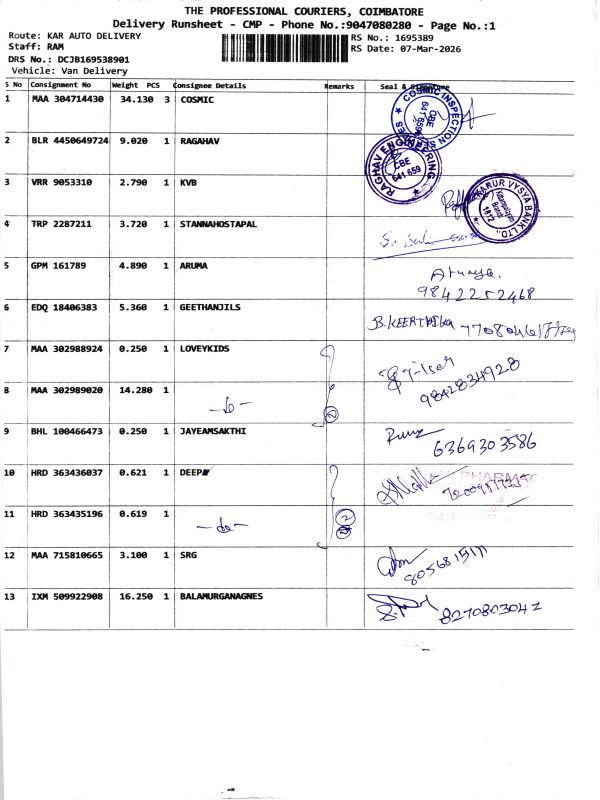 THE PROFESSIONAL COURIERS, COIMBATORE
Delivery Runsheet - CMP - Phone No.:9047080280 - Page No.:1
Route: KAR AUTO DELIVERY
Staff: RAM
DRS No.: DCJB169538901
Vehicle: Van Delivery
RS No.: 1695389
RS Date: 07-Mar-2026
S No Consignment No Weight PCS Consignee Details Remarks Seal & Signature
1 MAA 304714430 34.130 3 COSMIC
COSMIC INSPECTION
CBE
2 BLR 4450649724 9.020 1 RAGAHAV
RAGHAV ENGINEERING
CBE
641 659
3 VRR 9053310 2.790 1 KVB
KARUR VYSYA BANK LTD.,
1872
4 TRP 2287211 3.720 1 STANNAHOSTAPAL
5 GPM 161789 4.890 1 ARUMA
9842252468
6 EDQ 18406383 5.360 1 GEETHANJILS
B.KEERTHIKA
7 MAA 302988924 0.250 1 LOVEYKIDS
9842834928
8 MAA 302989020 14.280 1
-do-
2
9 BHL 100466473 0.250 1 JAYEAMSAKTHI
6369303586
10 HRD 363436037 0.621 1 DEEPA
PHARMAC
11 HRD 363435196 0.619 1
-do-
2
12 MAA 715810665 3.100 1 SRG
13 IXM 509922908 16.250 1 BALAMURGANAGNES